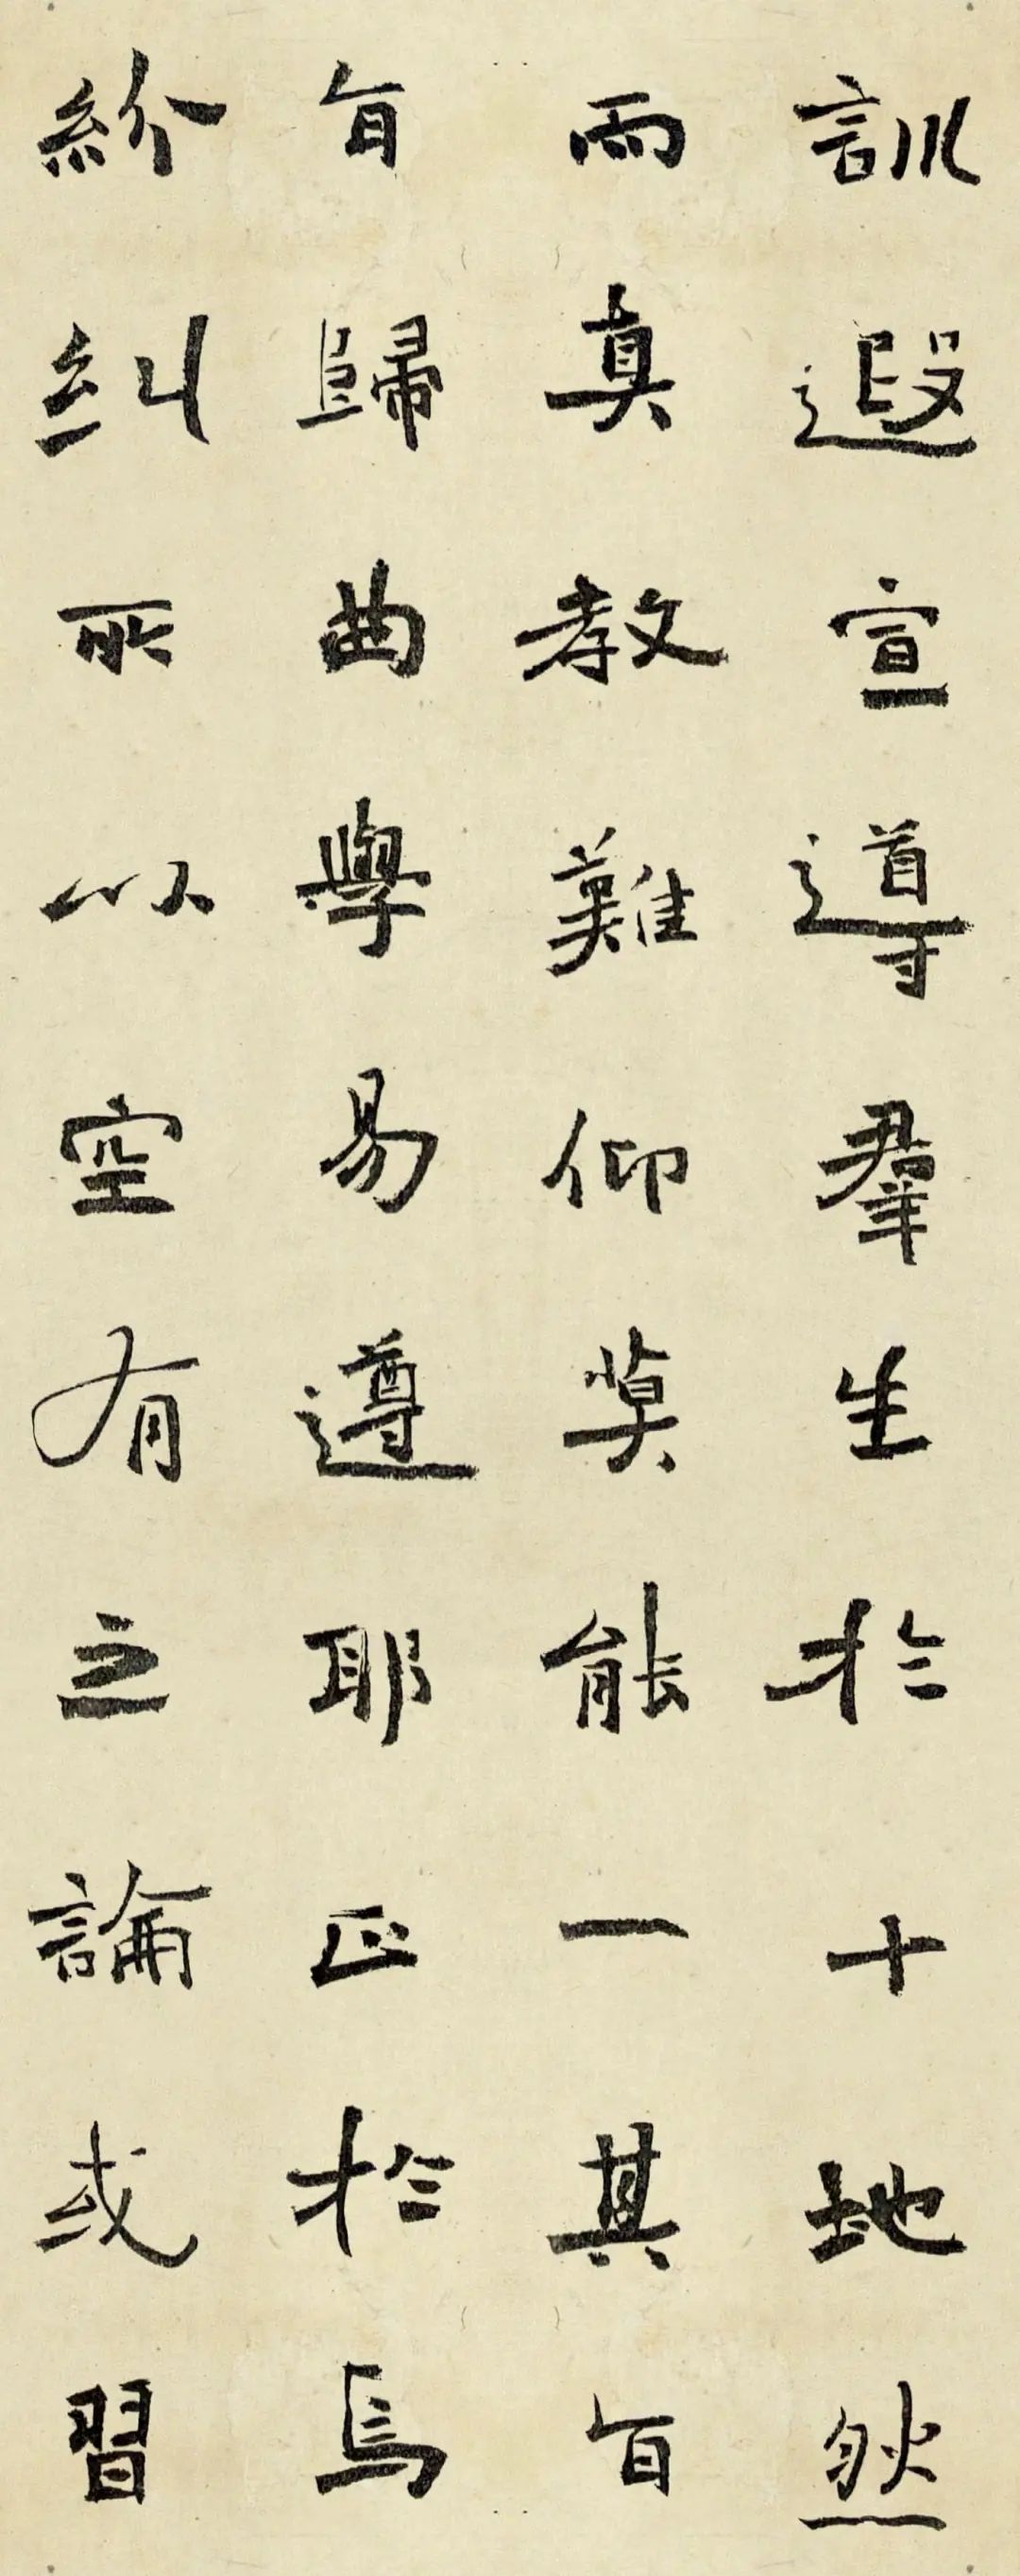 訓遐宣導羣生於十地然
而真教難仰莫能一其旨
旨歸曲學易遵耶正於焉
紛糾所以空有之論或習